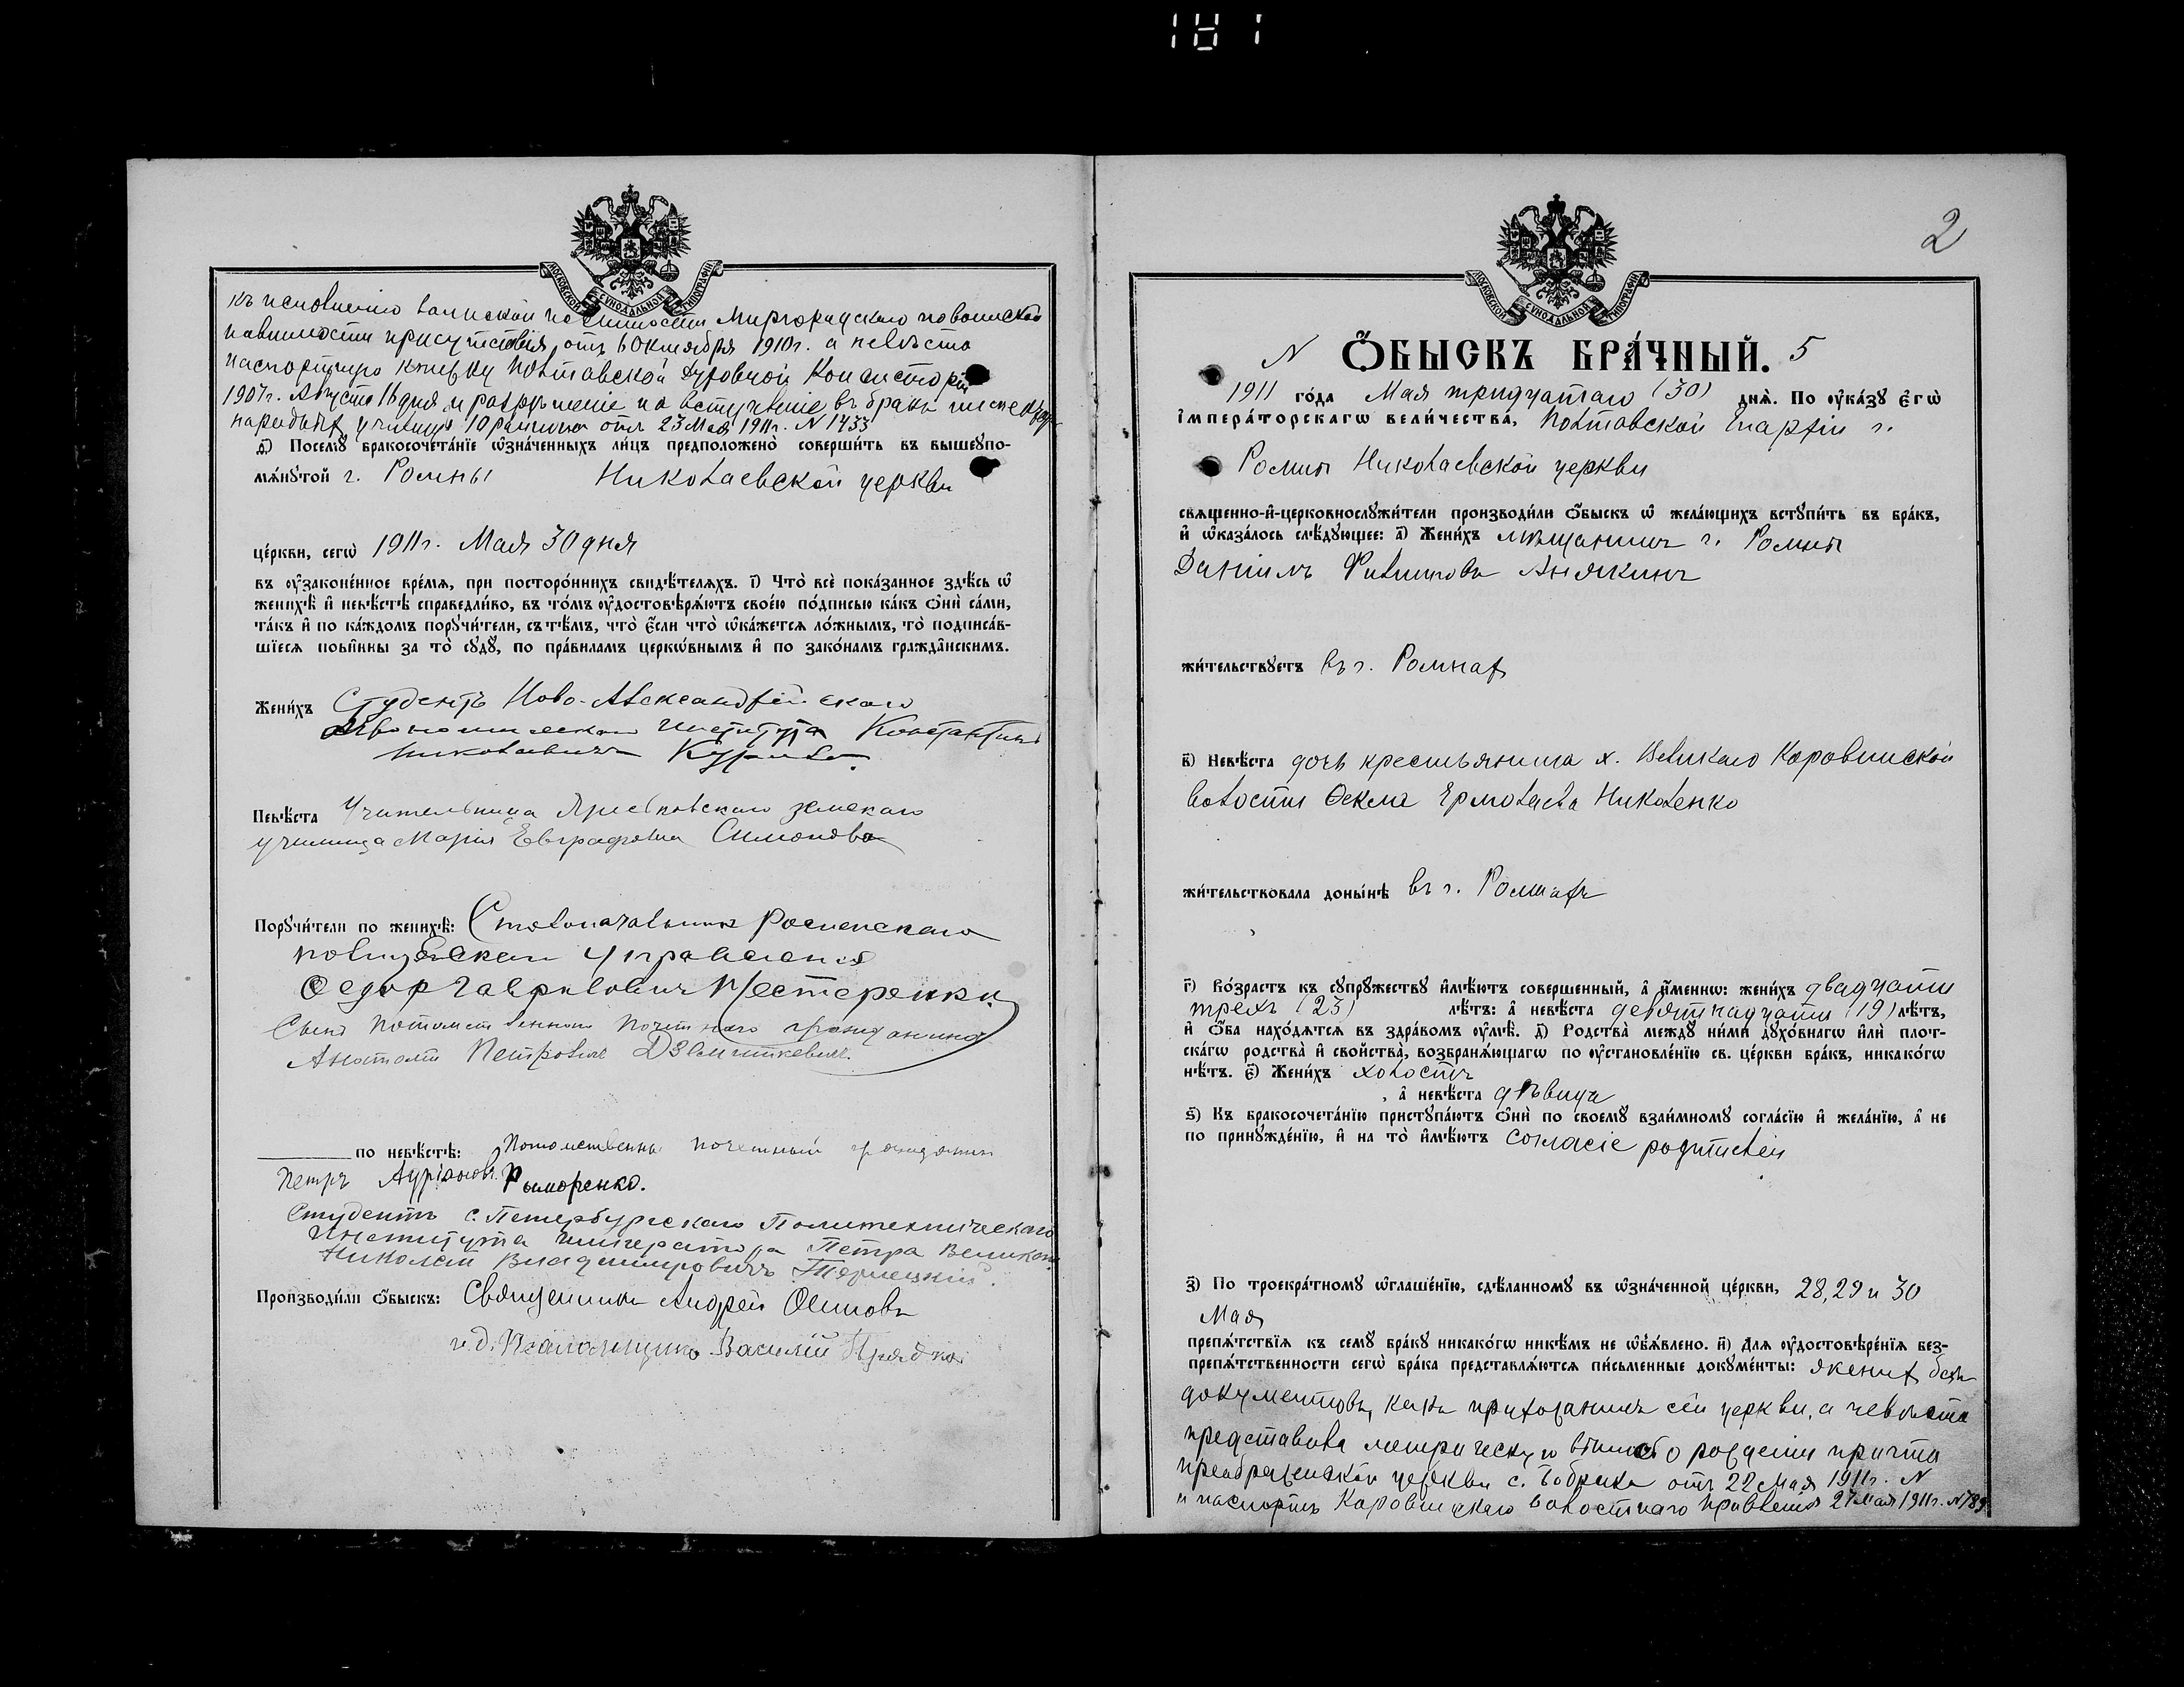 181
МОСКОВСКОЙ СѴНОДАЛЬНОЙ ТИПОГРАФІИ
къ исполненію воинской повинности Миргородскаго по воинской
повинности присутствія, отъ 6 Октября 1910 г. а невѣста
паспортную книжку Полтавской Духовной Консисторіи
1907 г. Августа 16 дня и разрѣшеніе на вступленіе въ бракъ
народныхъ училищъ 10 района отъ 23 Мая 1911 г. N 1433
ѳ҃) Посемꙋ̀ бракосочета́нїе ѡ҆зна́ченныхъ ли́цъ предположено̀ соверши́ть въ вышеꙋпо-
мѧ́нꙋтой г. Ромны Николаевской церкви
це́ркви, сегѡ̀ 1911 г. Мая 30 дня
въ ᲂу҆законе́нное вре́мѧ, при посторо́ннихъ свидѣ́телѧхъ. і҃) Что̀ всѐ пока́занное здѣ́сь ѡ҆
женихѣ̀ и҆ невѣ́стѣ справедли́во, въ то́мъ ᲂу҆достовѣрѧ́ютъ свое́ю по́дписью ка́къ ѻ҆нѝ са́ми,
та́къ и҆ по ка́ждомъ порꙋчи́тели, съ тѣ́мъ, что̀ є҆́сли что̀ ѡ҆ка́жетсѧ ло́жнымъ, то̀ подписа́в-
шїесѧ пови́нны за то̀ сꙋдꙋ̀, по пра́виламъ церкѡ́внымъ и҆ по зако́намъ гражда́нскимъ.
Жени́хъ Студентъ Ново-Александрійскаго
Института Константинъ
Николаевичъ
Невѣ́ста Учительница земскаго
училища Марія Евграфовна Симонова
Порꙋчи́тели по женихѣ̀: Столоначальникъ Роменскаго
полицейскаго управленія
Ѳедор Гаврилович Нестеренко
Сынъ потомственнаго почетнаго гражданина
Анатолій Петровичъ
по невѣ́стѣ: Потомственный почетный гражданин
Петръ Рыморенко.
Студентъ С. Петербургскаго Политехническаго
Института Императора Петра Великаго
Николай Владимировичъ
Производи́ли ѻ҆́быскъ: Священникъ Андрей Осиповъ
и. д. Псаломщика Василій
2
МОСКОВСКОЙ СѴНОДАЛЬНОЙ ТИПОГРАФІИ
N Ѻ҆́БЫСКЪ БРА́ЧНЫЙ. 5
1911 го́да Мая тридцатаго (30) днѧ̀. По ᲂу҆ка́зꙋ є҆гѡ̀
і҆мпера́торскагѡ вели́чества, Полтавской Епархіи г.
Ромна Николаевской церкви
свѧщенно-и҆-церковнослꙋжи́тели производи́ли ѻ҆́быскъ ѡ҆ жела́ющихъ встꙋпи́ть въ бра́къ,
и҆ ѡ҆каза́лось слѣ́дꙋющее: а҃) Жени́хъ мѣщанинъ г. Ромна
Даніилъ Филиповъ Аникинъ
жи́тельствꙋетъ въ г. Ромнах
в҃) Невѣ́ста дочь крестьянина х. Великаго Коровинской
волости Ѳекла Ермолаева Николенко
жи́тельствовала доны́нѣ въ г. Ромнахъ
г҃) Во́зрастъ къ сꙋпрꙋ́жествꙋ и҆мѣ́ютъ соверше́нный, а҆ и҆́менно: жени́хъ двадцати
трехъ (23) лѣ́тъ: а҆ невѣ́ста девятнадцати (19) лѣ́тъ,
и҆ ѻ҆́ба нахо́дѧтсѧ въ здра́вомъ ᲂу҆мѣ̀. д҃) Родства̀ междꙋ̀ ни́ми дꙋхо́внагѡ и҆лѝ плот-
ска́гѡ родства̀ и҆ сво́йства, возбранѧ́ющагѡ по ᲂу҆становле́нїю св. це́ркви бра́къ, никако́гѡ
нѣ́тъ. є҃) Жени́хъ холостъ
а҆ невѣ́ста дѣвица
ѕ҃) Къ бракосочета́нїю пристꙋпа́ютъ ѻ҆нѝ по своемꙋ̀ взаи́мномꙋ согла́сїю и҆ жела́нїю, а҆ не
по принꙋжде́нїю, и҆ на то̀ и҆мѣ́ютъ согласіе родителей
з҃) По троекра́тномꙋ ѡ҆глаше́нїю, сдѣ́ланномꙋ въ ѡ҆зна́ченной це́ркви, 28, 29 и 30
Мая
препѧ́тствїѧ къ семꙋ̀ бра́кꙋ никако́гѡ никѣ́мъ не ѡ҆б̾ѧ́влено. и҃) Длѧ ᲂу҆достовѣре́нїѧ без-
препѧ́тственности сегѡ̀ бра́ка представлѧ́ютсѧ пи́сьменные докꙋме́нты: жених безъ
документовъ, какъ прихожанинъ сей церкви, а невѣста
представила метрическую выпись о рожденіи причта
преображенской церкви с. Бобрика отъ 22 Мая 1911 г. N
и паспортъ Коровинскаго волостнаго правленія 27 Мая 1911 г. N 789